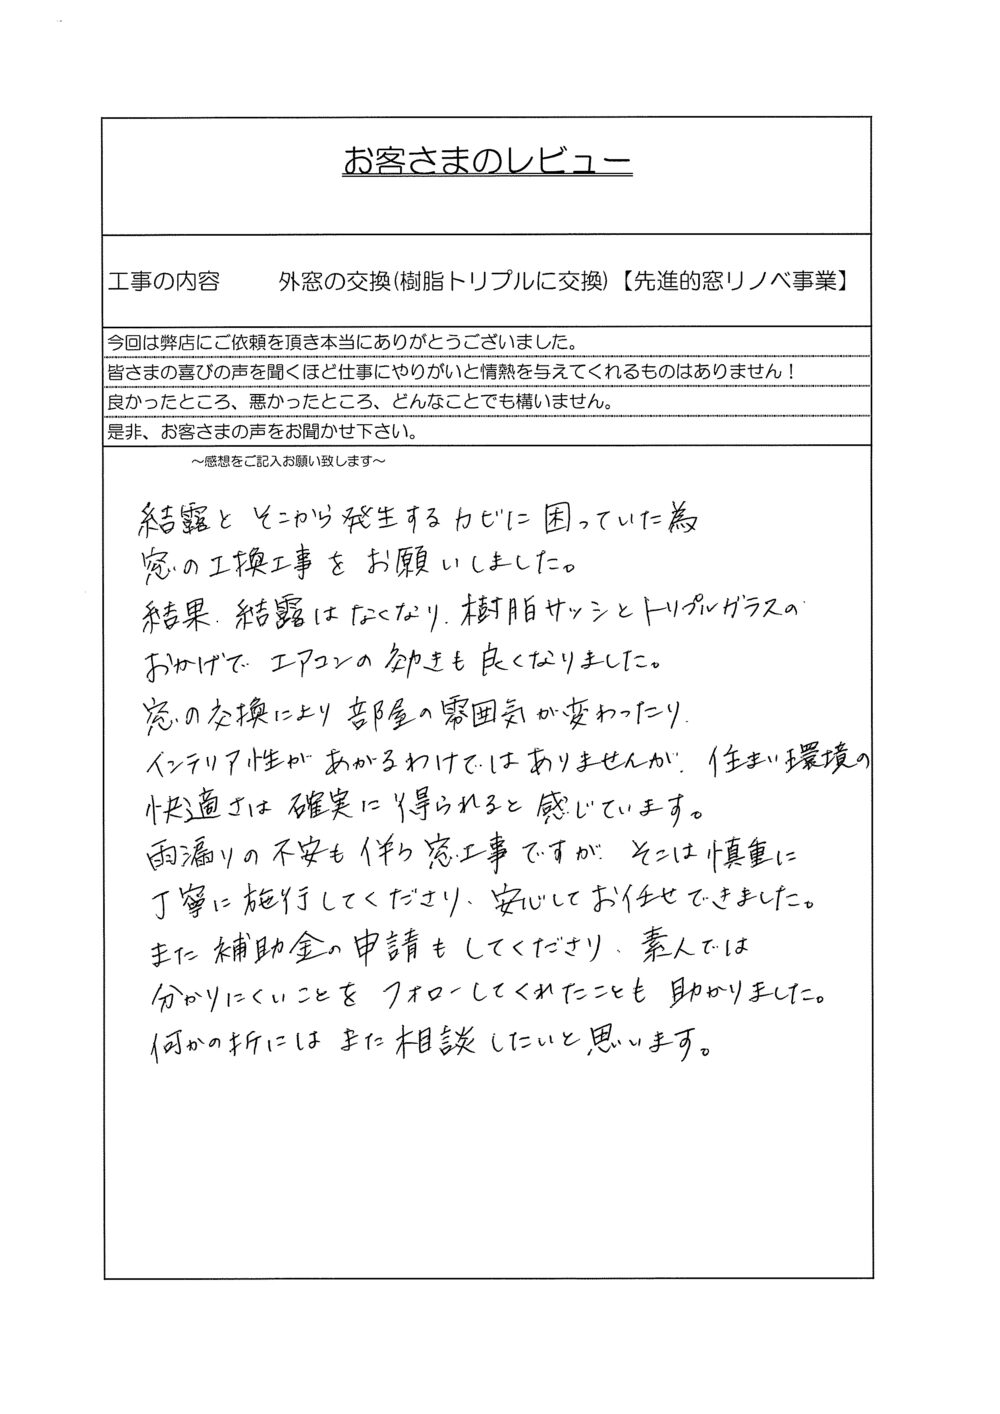 お客さまのレビュー
工事の内容 外窓の交換(樹脂トリプルに交換)【先進的窓リノベ事業】
今回は弊店にご依頼を頂き本当にありがとうございました。
皆さまの喜びの声を聞くほど仕事にやりがいと情熱を与えてくれるものはありません!
良かったところ、悪かったところ、どんなことでも構いません。
是非、お客さまの声をお聞かせ下さい。
~感想をご記入お願い致します~
結露と そこから発生するカビに困っていた為
窓の工換工事を お願いしました。
結果、結露はなくなり、樹脂サッシとトリプルグラスの
おかげで エアコンの効きも良くなりました。
窓の交換により 部屋の雰囲気が変わったり、
インテリア性が あがるわけではありませんが、住まい環境の
快適さは 確実に得られると感じています。
雨漏りの不安も伴う窓工事ですが、そこは慎重に
丁寧に施行してくださり、安心してお任せできました。
また補助金の申請もしてくださり、素人では
分かりにくいことを フォローしてくれたことも 助かりました。
何かの折には また 相談したいと思います。